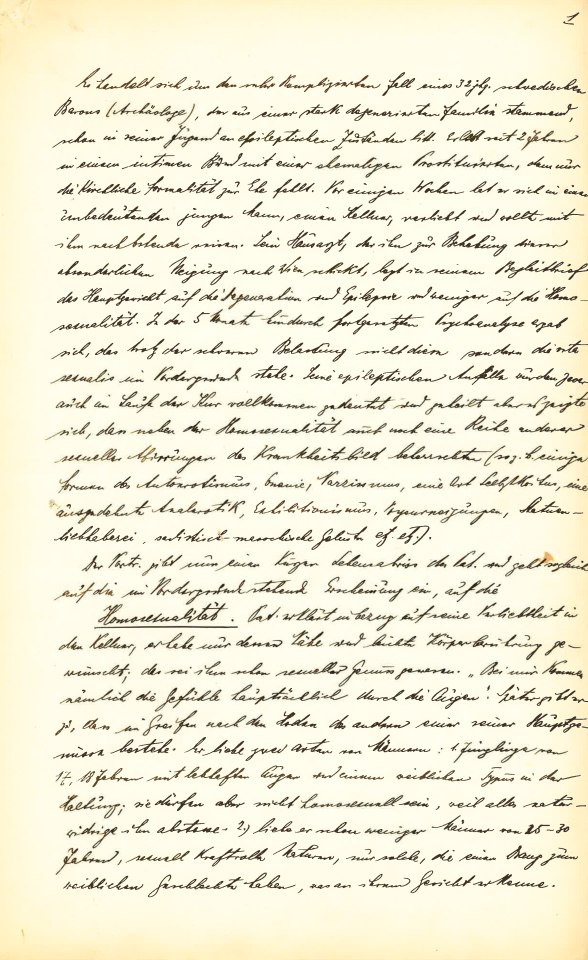 1
Es handelt sich um den sehr komplizierten Fall eines 32 jhg. schwedischen
Barons (Archäologe), der aus einer stark degenerierten Familie stammend,
schon in seiner Jugend an epileptischen Zuständen litt. Er lebt seit 2 Jahren
in einem intimen Bund mit einer ehemaligen Prostituierten, dem nur
die kirchliche Formalität zur Ehe fehlt. Vor einigen Wochen hat er sich in einen
unbedeutenden jungen Mann, einen Kellner, verliebt und wollte mit
ihm nach reisen. Sein Hausarzt, der ihn zur Behebung dieser
absonderlichen Neigung nach Wien schickt, legt in seinem Begleitbrief
das Hauptgewicht auf die Degeneration und Epilepsie und weniger auf die Homo-
sexualität. In der 5 Monate hindurch fortgesetzten Psychoanalyse ergab
sich, dass trotz der schweren Belastung nicht diese sondern die vita
sexualis im Vordergrunde stehe. Seine epileptischen Anfälle wurden zwar
auch im Laufe der Kur vollkommen gedeutet und geheilt aber es zeigte
sich, dass neben der Homosexualität auch noch eine Reihe anderer
sexueller Abirrungen das Krankheitsbild beherrschten (so z. b. einige
Formen des Autoerotismus, Onanie, Narzismus, eine Art Selbstkoitus, eine
ausgedehnte Analerotik, Exhibitionismus, Voyeurneigungen, Statuen-
liebhaberei, sadistisch-masochische Gelüste etz. etz.).
Der Vortr. gibt nun einen kurzen Lebensabriss des Pat. und geht sogleich
auf die im Vordergrunde stehende Erscheinung ein, auf die
Homosexualität. Pat. erklärt in bezug auf seine Verliebtheit in
den Kellner, er habe nur dessen Nähe und leichte Körperberührung ge-
wünscht; das sei ihm schon sexueller Genuss gewesen. „Bei mir kommen
nämlich die Gefühle hauptsächlich durch die Augen". Später gibt er
zu, dass im Greifen nach den Hoden des anderen einer seiner Hauptge-
nüsse bestehe. Er liebe zwei Arten von Männern: 1. Jünglinge von
17, 18 Jahren mit lebhaften Augen und einem weiblichen Typus in der
Haltung; sie dürfen aber nicht homosexuell sein, weil alles natur-
widrige ihn abstosse. 2.) liebe er schon weniger Männer von 25-30
Jahren, sexuell kraftvolle Naturen, nur solche, die einen Drang zum
weiblichen Geschlechte haben, was er an ihrem Gesicht erkenne.